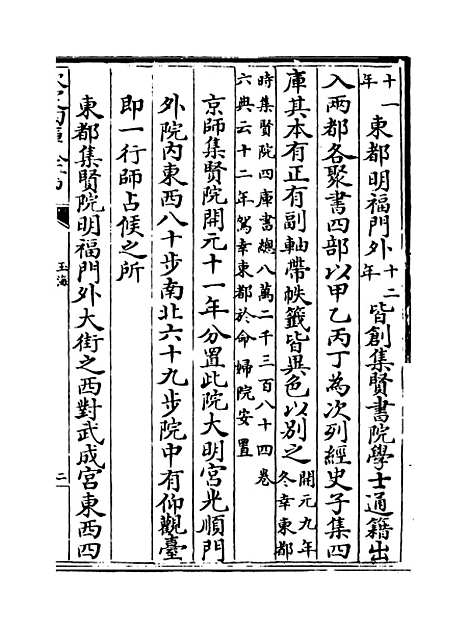 十一年東都明福門外十二年皆創集賢書院學士通籍出
入兩都各聚書四部以甲乙丙丁為次列經史子集四
庫其本有正有副軸帶帙籤皆異色以別之開元九年冬幸東都
時集賢院四庫書總八萬二千三百八十四卷
六典云十二年駕幸東都於命婦院安置
京師集賢院開元十一年分置此院大明宮光順門
外院內東西八十步南北六十九步院中有仰觀臺
即一行師占候之所
東都集賢院明福門外大街之西對武成宮東西四
玉海
二